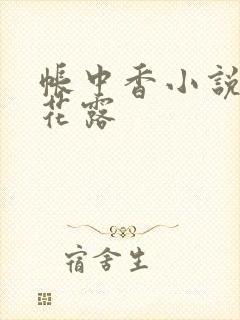 帳中香小說
花露
宿舍生